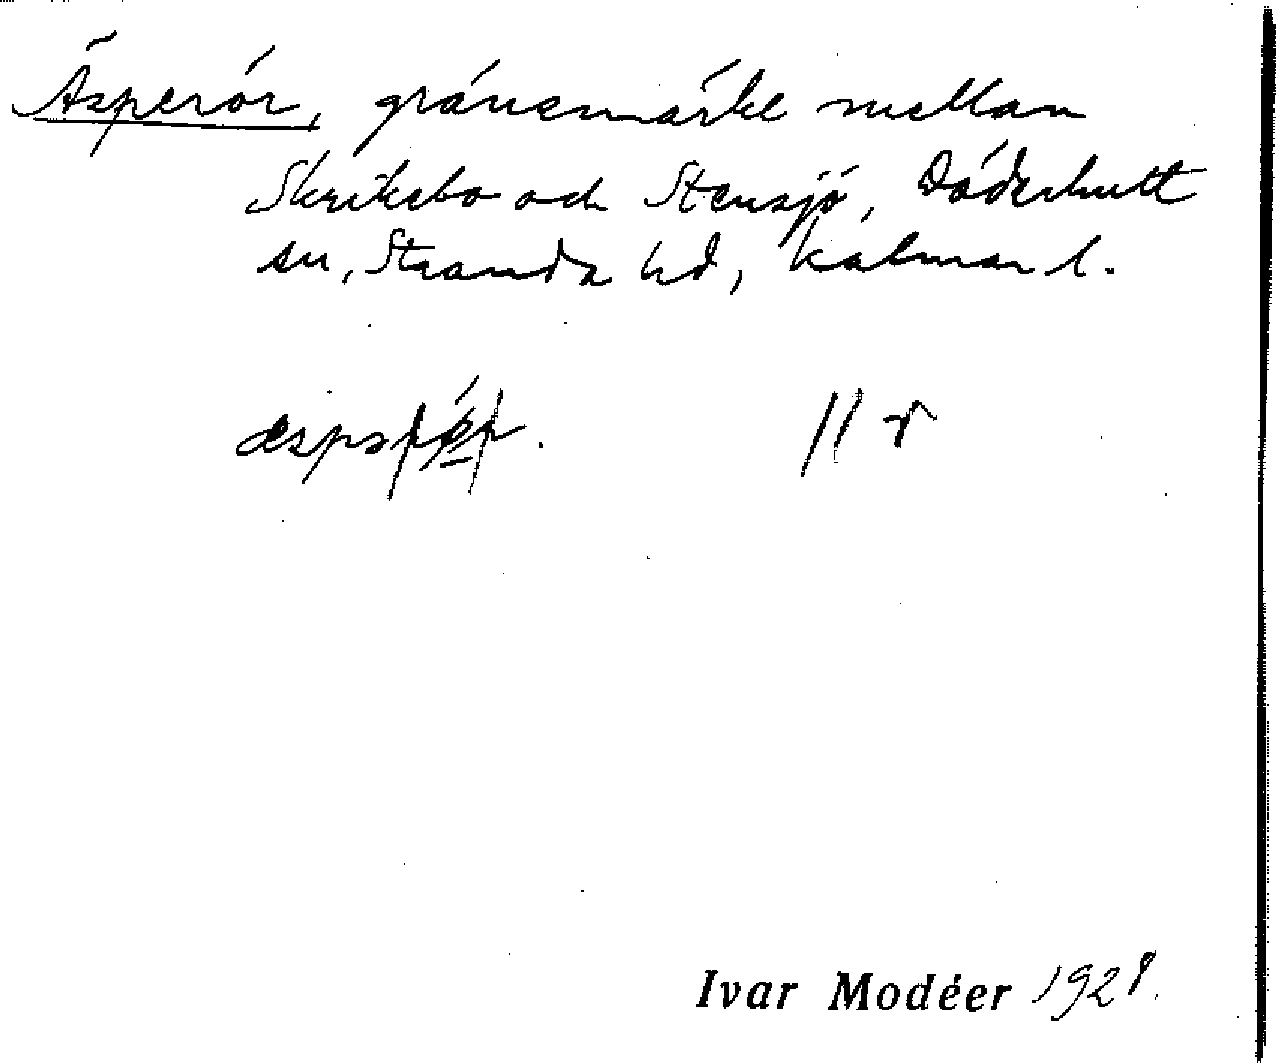 Äsperör, gränsmärke mellan
Skrikebo och Stensjö, Döderhult
sn, Stranda hd, Kalmar l.
Ivar Modéer 1928.